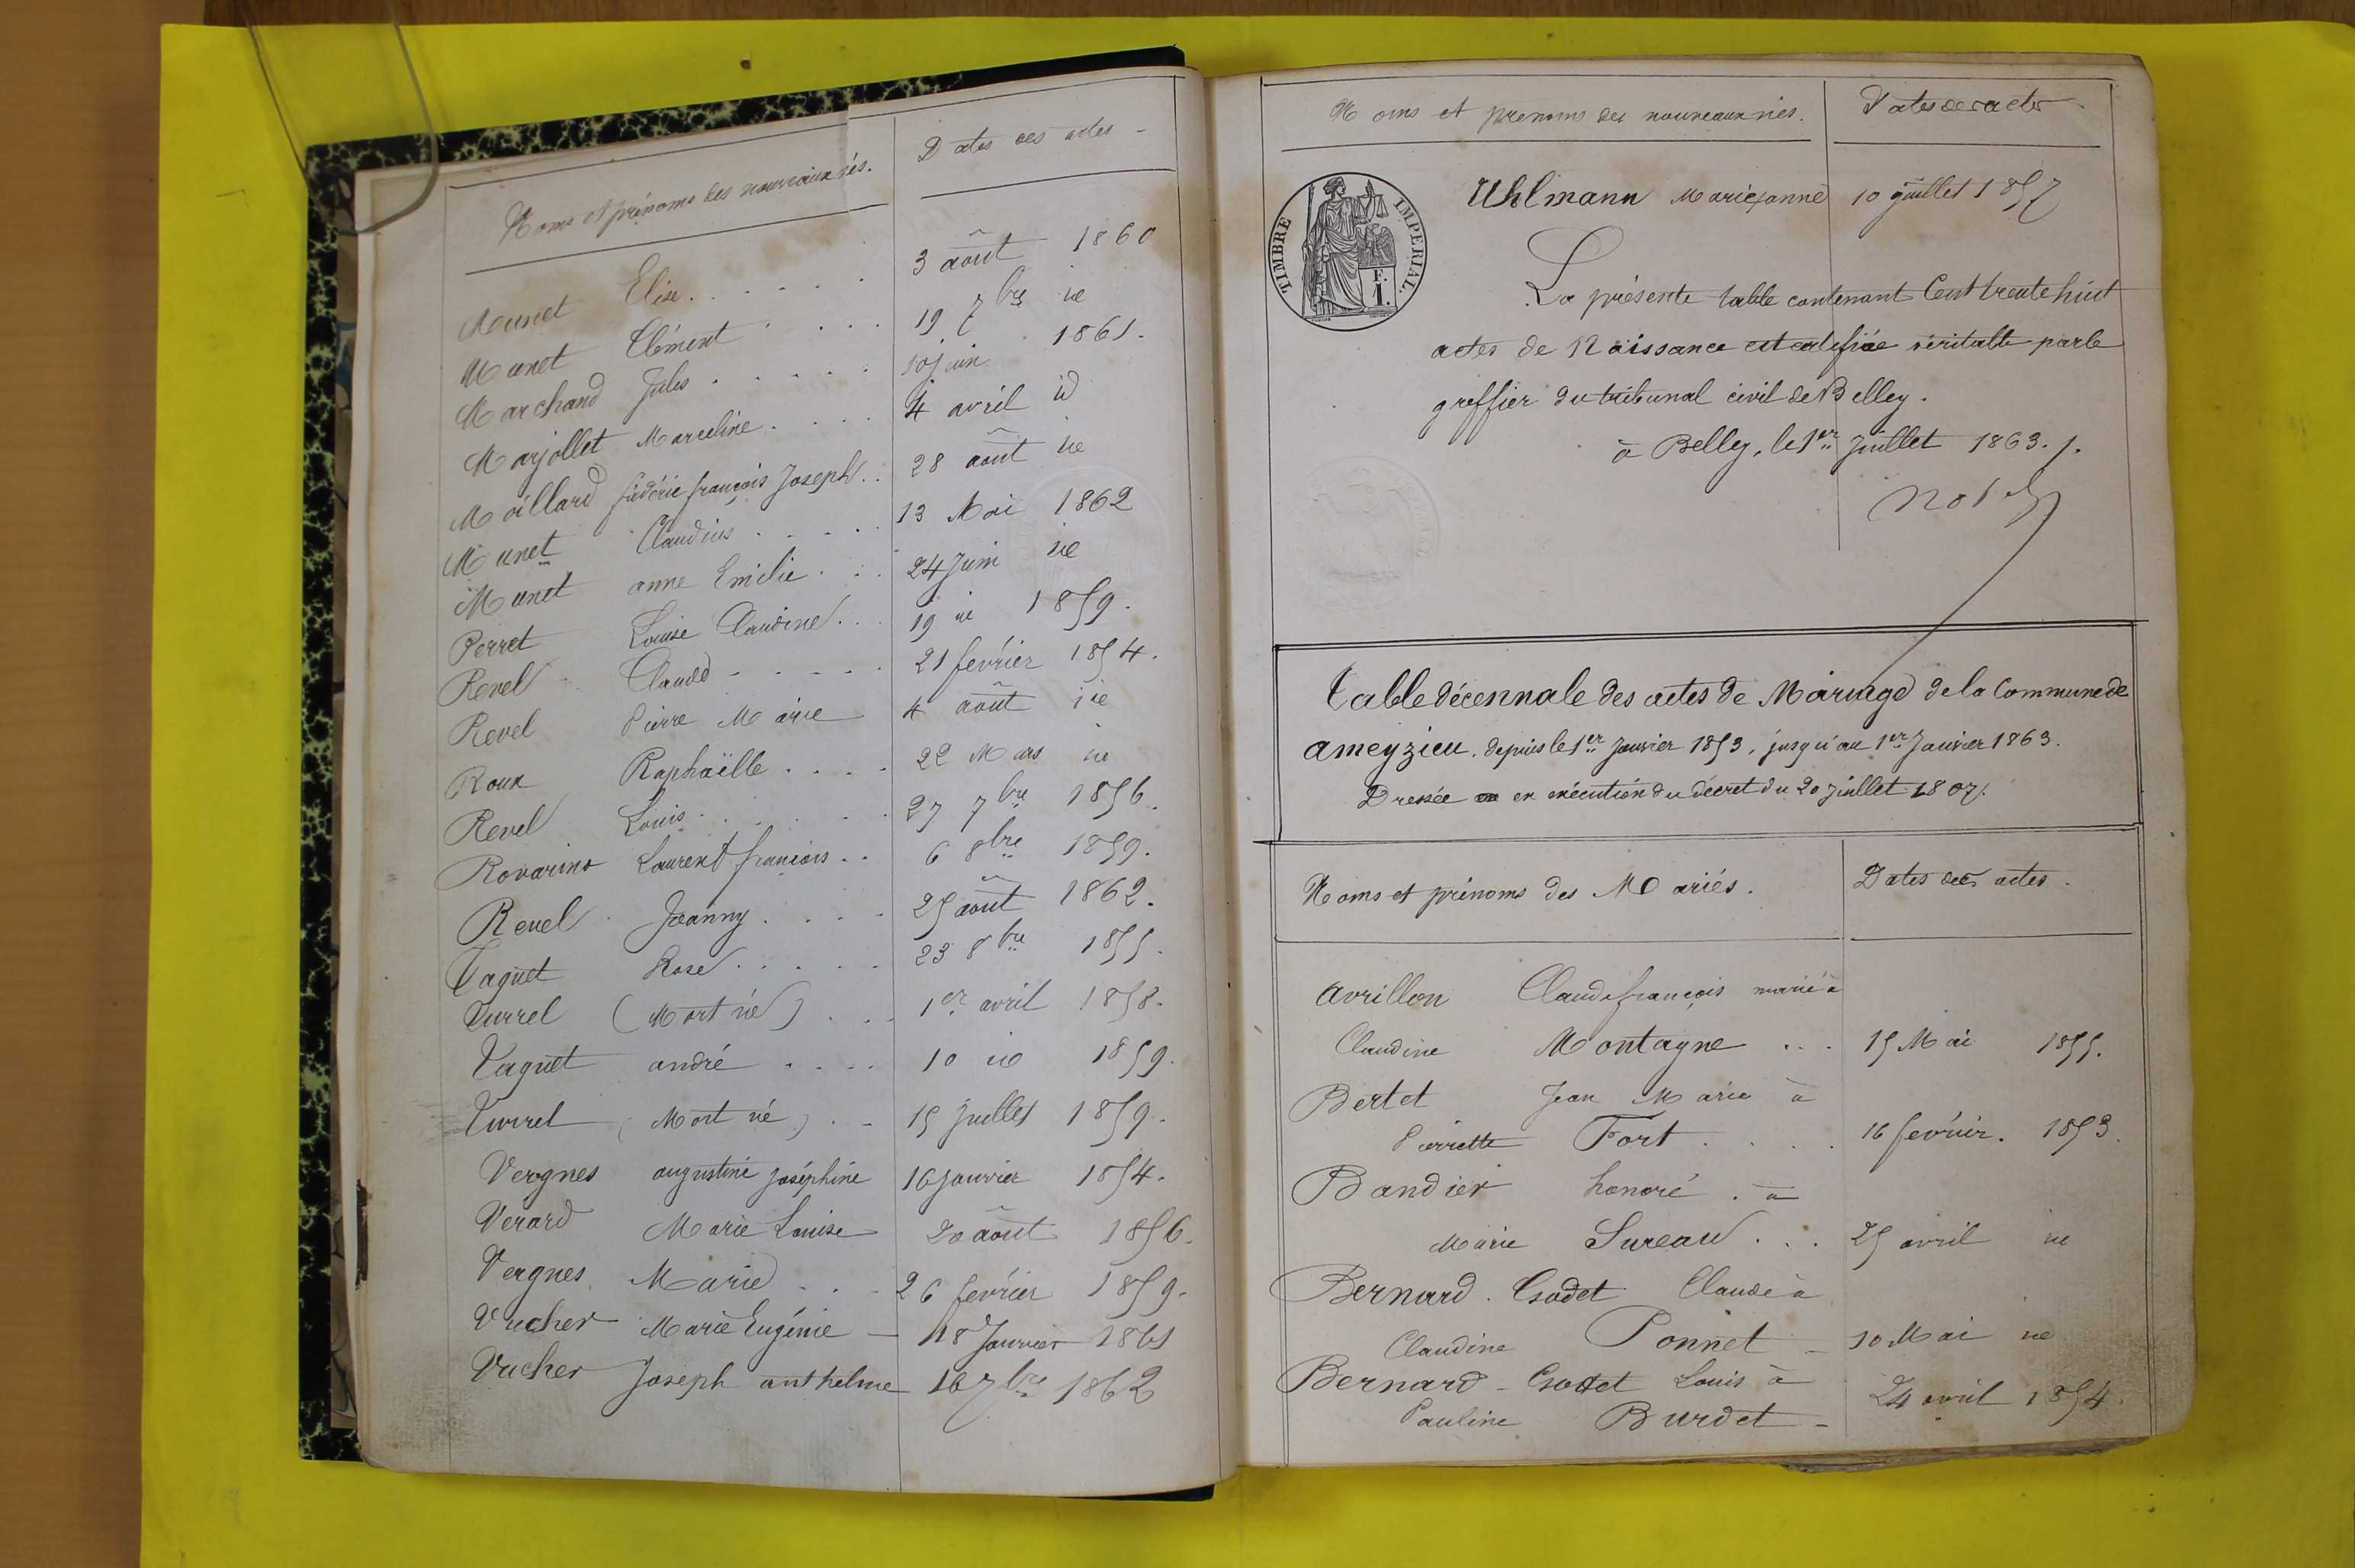 Noms et prénoms des nouveaux nés. Dates des actes -
Munet Elise . . . . . 3 août 1860
Munet Clément . . . 19 7bre id
Marchand Jules . . . . . 10 juin 1861.
Marjollet Marceline . . . . 4 avril id
Maillard frédéric françois Joseph . . 28 août id
Munet Claudius . . . . . 13 Mai 1862
Munet anne Emilie . . . 24 Juin id
Perret Louise Claudine . . 19 id 1859.
Revel Claude - - - - - 21 février 1854.
Revel Pierre Marie 4 août id
Roux Raphaëlle . . . . 22 Mars id
Revel Louis . . . . . . 27 7bre 1856.
Rovarino Laurent françois . . 6 8bre 1859.
Revel Joanny . . . . 25 août 1862.
Taguet Rose . . . . . 23 8bre 1855.
Turrel (Mort né) . . . 1er avril 1858.
Taguet andré . . . . 10 id 1859.
Turrel (Mort né) . - 15 juillet 1859.
Vergnes augustine joséphine 16 janvier 1854.
Verard Marie Louise 20 août 1856.
Vergnes Marie . . . 26 février 1859.
Vucher Marie Eugénie - 18 Janvier 1861
Vucher Joseph anthelme 16 7bre 1862
Noms et prenoms des nouveaux nés. Dates des actes.
TIMBRE IMPERIAL.
F.
1.
Uhlmann Marie jeanne 10 juillet 1857
La présente table contenant Cent trente huit
actes de Naissance est certifiée véritable par le
greffier du tribunal civil de Belley.
à Belley, le 1er Juillet 1863.
Table décennale des actes de Mariage de la Commune de
ameyzieu, depuis le 1er Janvier 1853, jusqu'au 1er Janvier 1863.
Dressée en en exécution du décret du 20 juillet 1807.
Noms et prénoms des Mariés. Dates des actes.
Avrillon Claude françois marié à
Claudine Montagne . . . 15 Mai 1855.
Bertet Jean Marie à
Pierrette Fort . . . . 16 février. 1853.
Bandier honoré . à
Marie Sureau . . . 25 avril id
Bernard - Godet Claude à
Claudine Ponnet - 10 Mai id
Bernard - Godet Louis à
Pauline Burdet - 24 avril 1854.